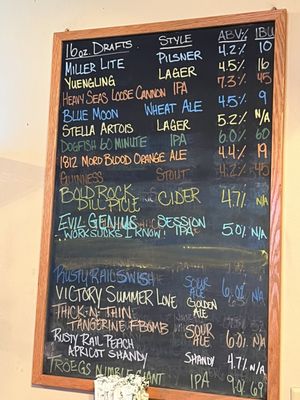 16oz. DRAFTS STYLE ABV% IBU
MILLER LITE PILSNER 4.2% 10
YUENGLING LAGER 4.5% 16
HEAVY SEAS LOOSE CANNON IPA 7.3% 45
BLUE MOON WHEAT ALE 4.5% 9
STELLA ARTOIS LAGER 5.2% N/A
DOGFISH 60 MINUTE IPA 6.0% 60
1812 MORD BLOOD ORANGE ALE 4.4% 19
GUINNESS STOUT 4.2% 45
BOLD ROCK
DILL PICLE CIDER 4.7% N/A
EVIL GENIUS SESSION
WORK SUCKS I KNOW! IPA 5.0% N/A
RUSTY RAIL SWISH SOUR ALE 6.0% N/A
VICTORY SUMMER LOVE GOLDEN ALE
THICK-N-THIN
TANGERINE FBOMB SOUR ALE 6.0% N/A
RUSTY RAIL PEACH
APRICOT SHANDY SHANDY 4.7% N/A
TRÖEGS NIMBLE GIANT IPA 9.0% 69